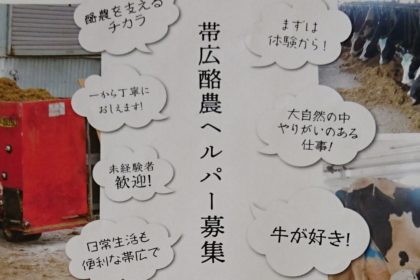 帯広酪農ヘルパー募集
酪農を支える
チカラ
一から丁寧に
おしえます!
未経験者
歓迎!
日常生活も
便利な帯広で
まずは
体験から!
大自然の中
やりがいのある
仕事!
牛が好き!